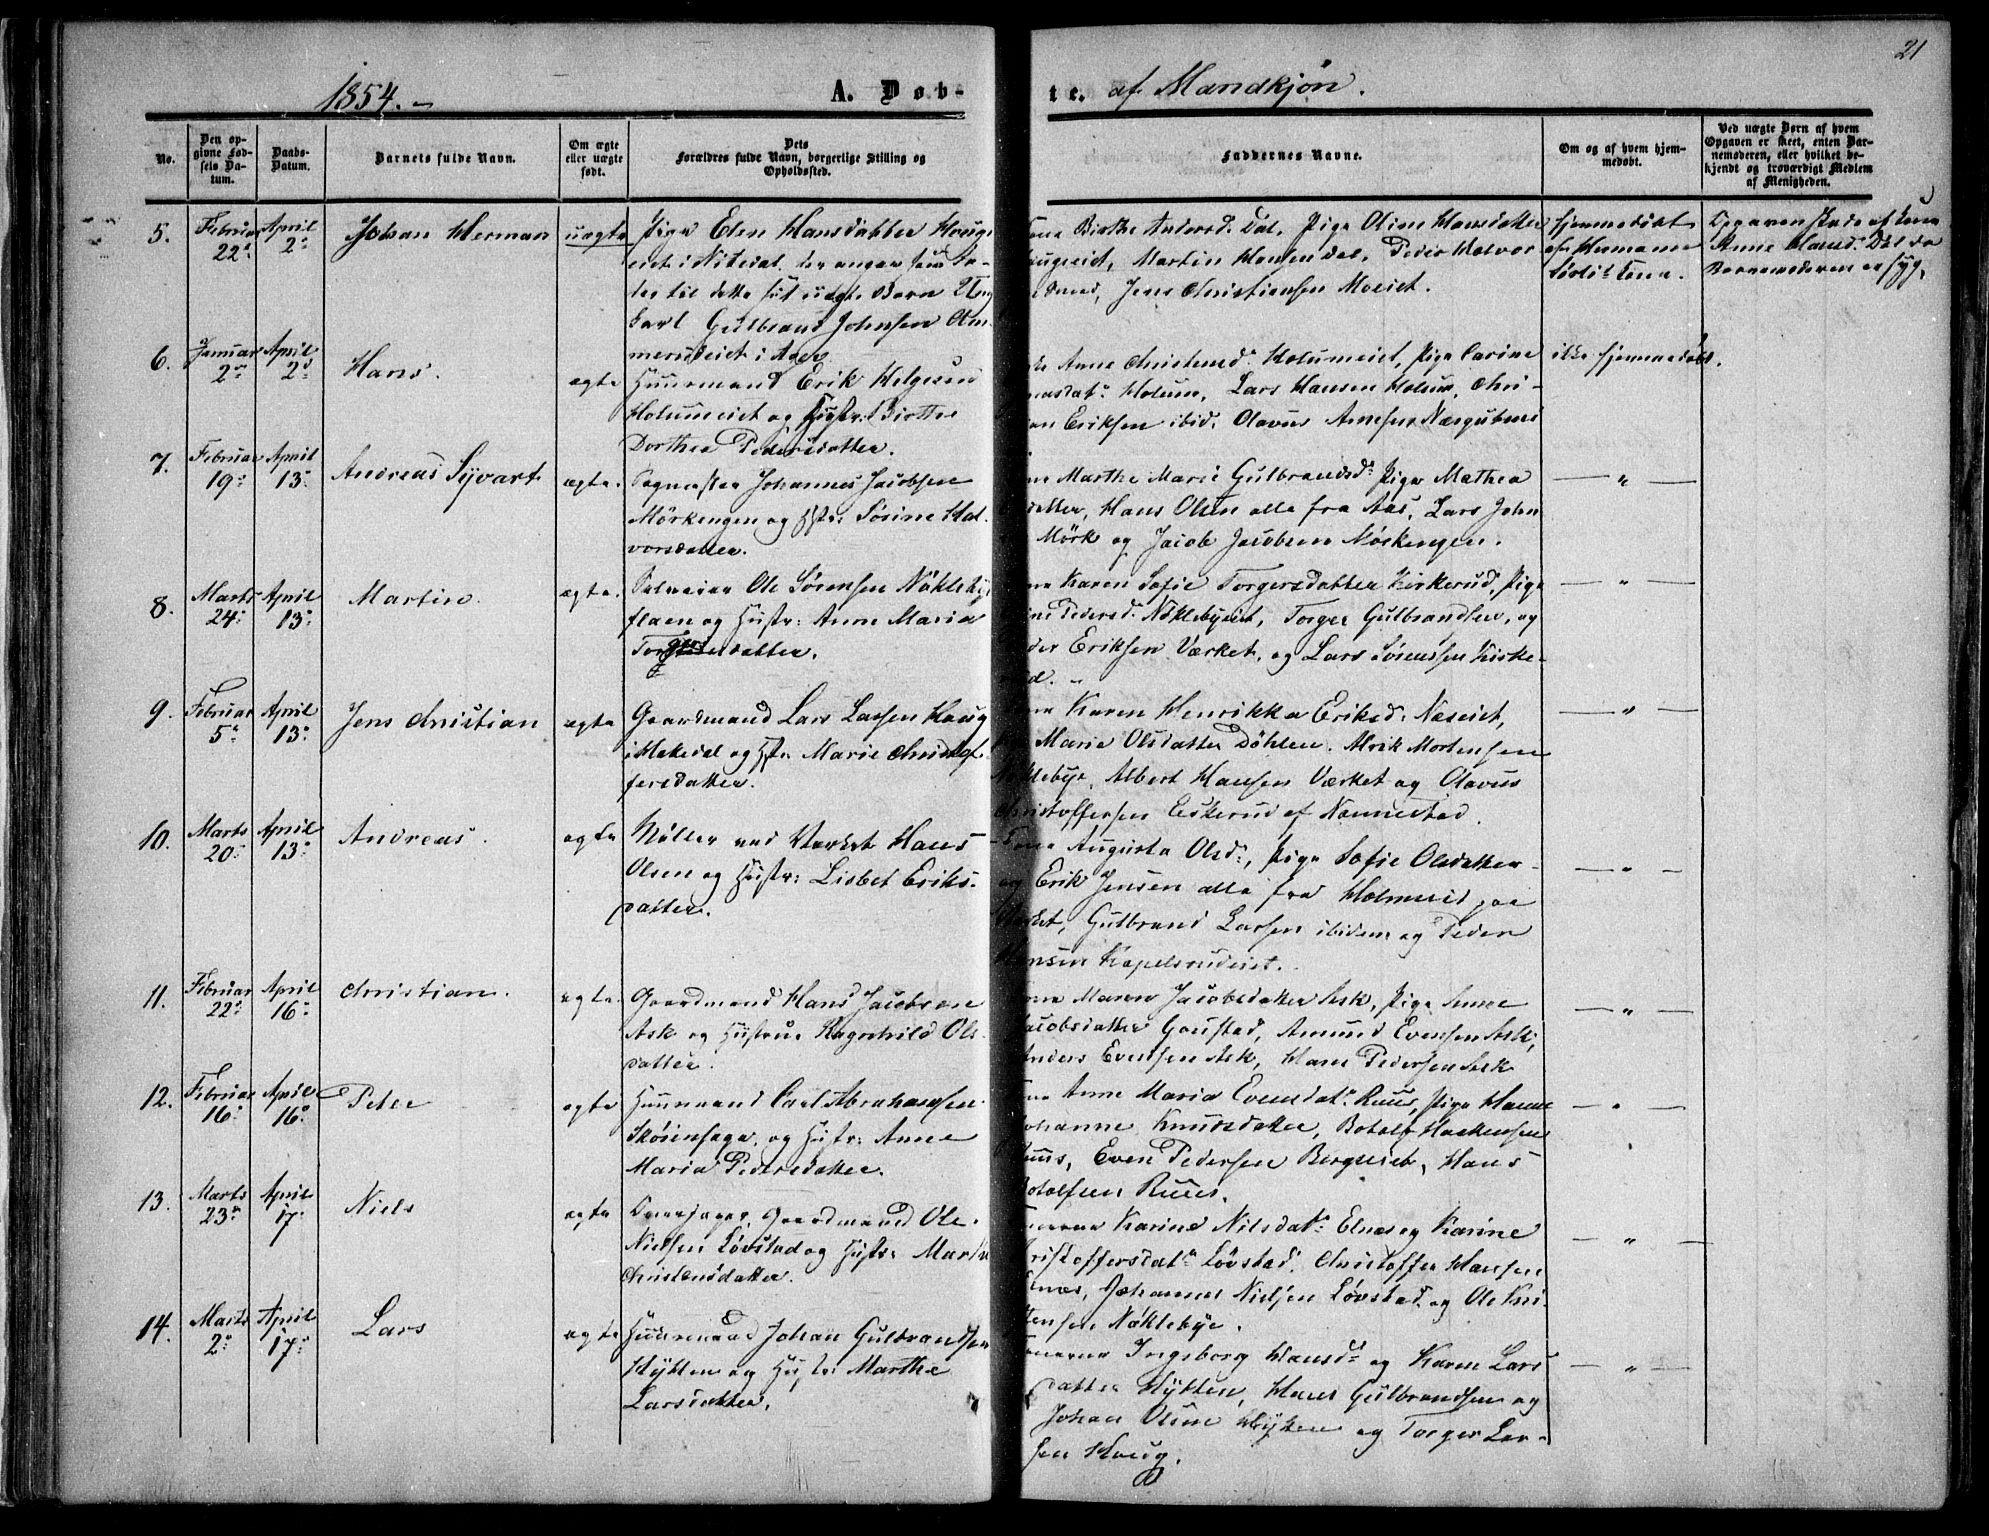 21
1854.
A. Døb-
te. af Mandkjøn.
No.
Den op-
givne Fød-
sels Da-
tum.
Daabs-
Datum.
Barnets fulde Navn.
Om ægte
eller uægte
født.
Dets
Forældres fulde Navn, borgerlige Stilling og
Opholdssted.
Faddernes Navne.
Om og af hvem hjem-
medøbt.
Ved uægte Børn af hvem
Opgaven er skeet, enten Bar-
nemoderen, eller hvilket be-
kjendt og troværdigt Medlem
af Menigheden.
5. Februar 22 April 2 Johan Herman uægte
Pige Elen Hansdatter Houg-
eiet i Nitedal, der angav som Fa-
der til dette sit uægte Barn Ung-
karl Gulbrand Johnsen Am-
merudeiet i Ager
Birthe Andersd. Dal, Pige Oline Hansdatter
Martin Hansen Dal, Peder Halvor
Jens Christiansen Moeiet.
hjemmedøbt
af Hermana
Opgaven skede af Kone
Anne Hansd. Dal da
Barnemoderen er syg.
6. Januar 2 April 2 Hans. ægte
Huusmand Erik Helgesen
Holumeiet og Hustr. Birthe
Dorthea Pedersdatter.
Anne Christensd. Holumeiet, Pige Carine
Holum, Lars Hansen Holum, Chri-
Eriksen ibid. Olavus Arnesen
ikke hjemmedøbt.
7. Februar 19 April 13 Andreas Syvart ægte.
Johannes Jacobsen
Mörkengen og Hstr. Sørine Hal-
vorsdatter.
Marthe Marie Gulbrandsd. Pige Mathea
Hans Olsen alle fra Aas, Lars John
Mörk og Jacob Jacobsen Mörkengen.
— " —
8. Marts 24 April 13 Martin. ægte.
Ole Sörensen
og Hustr: Anne Maria
Torgersdatter.
Karen Sofie Torgersdatter Kirkerud, Pige
Pedersd. Nöklebyeiet, Torger Gulbrandsen, og
Eriksen Værket, og Lars Sörensen Kirke-
— " —
9. Februar 5 April 13 Jens Christian ægte
Gaardmand Lars Larsen Houg
i Hakedal og Hstr. Marie Christof-
fersdatter.
Karen Henrikka Eriksd. Næseiet,
Marie Olsdatter Döhlen. Alrik Mortensen
Albert Hansen Værket og Olavus
Christoffersen Eskerud af Nannestad.
— " —
10. Marts 20 April 13 Andreas. ægte
Möller ved Værket Hans
Olsen og Hustr: Lisbet Eriks-
datter.
Augusta Olsd., Pige Sofie Olsdatter
og Erik Jensen alle fra Holmeeid paa
Gulbrand Larsen ibidem og Peder
— " —
11. Februar 22 April 16 Christian. ægte.
Gaardmand Hans Jacobsen
Ask og Hustru Ragnhild Ols-
datter.
Maren Jacobsdatter Ask, Pige Anne
Jacobsdatter Goustad, Amund Evensen Ask,
Anders Evensen Ask, Hans Pedersen Ask
— " —
12. Februar 16 April 16 Peter ægte
Huusmand Carl Abrahamsen
Skøiensage og Hustr: Anne
Maria Pedersdatter.
Anne Maria Evensdat. Ruus, Pige Hanne
Johanne Knudsdatter, Botolf Haakensen
Ruus, Even Pedersen Bergeiet, Hans
Botolfsen Ruus.
— " —
13. Marts 23 April 17 Niels ægte
Gaardmand Ole
Nielsen Lövstad og Hustr: Marthe
Christensdatter.
Karine Nilsdat. Elnæs og Karine
Christoffersdat. Lövstad. Christoffer Hansen
Johannes Nielsen Lövstad og Ole Kri-
stensen Nöklebye.
— " —
14. Marts 2 April 17 Lars ægte
Huusmand Johan Gulbrandsen
Hykken og Hustr: Marthe
Larsdatter.
Ingeborg Hansd. og Karen Lars
datter Hykken, Hans Gulbrandsen og
Johan Olsen Hykken og Torger Lar-
sen Houg.
— " —